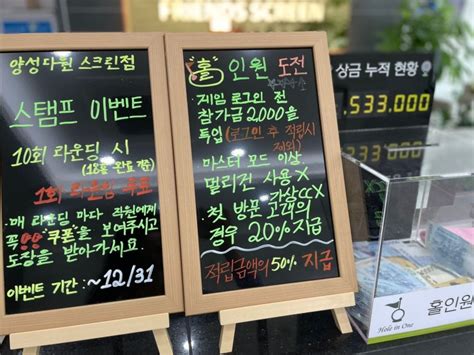 FRIENDS SCREEN
양성다원 스크린점
스탬프 이벤트
10회 라운딩 시
(18홀 완료 기준)
1회 라운딩 무료
매 라운딩 마다 직원에게
꼭!! "쿠폰"을 보여주시고
도장을 받아가세요.
이벤트 기간 : ~12/31
홀 인원 도전
게임 로그인 전
참가금 2000을
투입 (로그인 후 적립시
제외)
마스터 모드 이상.
멀리건 사용X
첫 방문 고객의
경우 20% 지급
적립금액의 50% 지급
상금 누적 현황
533.000
533.000
Hole in One
홀인원